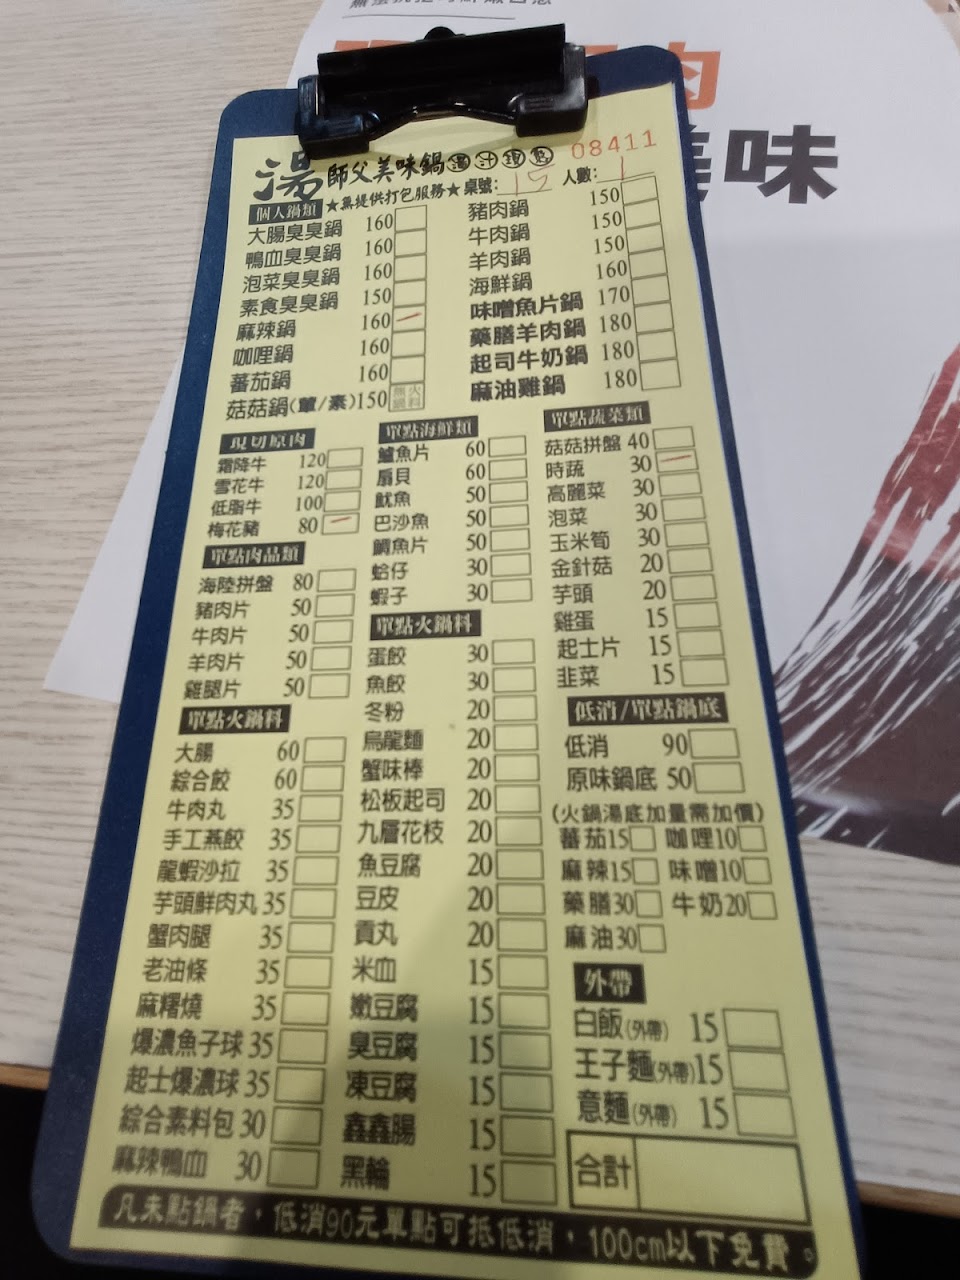 美味
湯師父美味鍋 湯汁現熬 08411
★無提供打包服務★ 桌號: 15 人數: 1
個人鍋類
大腸臭臭鍋 160
鴨血臭臭鍋 160
泡菜臭臭鍋 160
素食臭臭鍋 150
麻辣鍋 160
咖哩鍋 160
蕃茄鍋 160
菇菇鍋(葷/素) 150 無火鍋料
豬肉鍋 150
牛肉鍋 150
羊肉鍋 150
海鮮鍋 160
味噌魚片鍋 170
藥膳羊肉鍋 180
起司牛奶鍋 180
麻油雞鍋 180
現切原肉
霜降牛 120
雪花牛 120
低脂牛 100
梅花豬 80
單點肉品類
海陸拼盤 80
豬肉片 50
牛肉片 50
羊肉片 50
雞腿片 50
單點火鍋料
大腸 60
綜合餃 60
牛肉丸 35
手工燕餃 35
龍蝦沙拉 35
芋頭鮮肉丸 35
蟹肉腿 35
老油條 35
麻糬燒 35
爆濃魚子球 35
起士爆濃球 35
綜合素料包 30
麻辣鴨血 30
單點海鮮類
鱸魚片 60
扇貝 60
魷魚 50
巴沙魚 50
鯛魚片 50
蛤仔 30
蝦子 30
單點火鍋料
蛋餃 30
魚餃 30
冬粉 20
烏龍麵 20
蟹味棒 20
松板起司 20
九層花枝 20
魚豆腐 20
豆皮 20
貢丸 20
米血 15
嫩豆腐 15
臭豆腐 15
凍豆腐 15
鑫鑫腸 15
黑輪 15
單點蔬菜類
菇菇拼盤 40
時蔬 30
高麗菜 30
泡菜 30
玉米筍 30
金針菇 20
芋頭 20
雞蛋 15
起士片 15
韭菜 15
低消/單點鍋底
低消 90
原味鍋底 50
(火鍋湯底加量需加價)
蕃茄15 咖哩10
麻辣15 味噌10
藥膳30 牛奶20
麻油30
外帶
白飯(外帶) 15
王子麵(外帶) 15
意麵(外帶) 15
合計
凡未點鍋者，低消90元單點可抵低消，100cm以下免費。